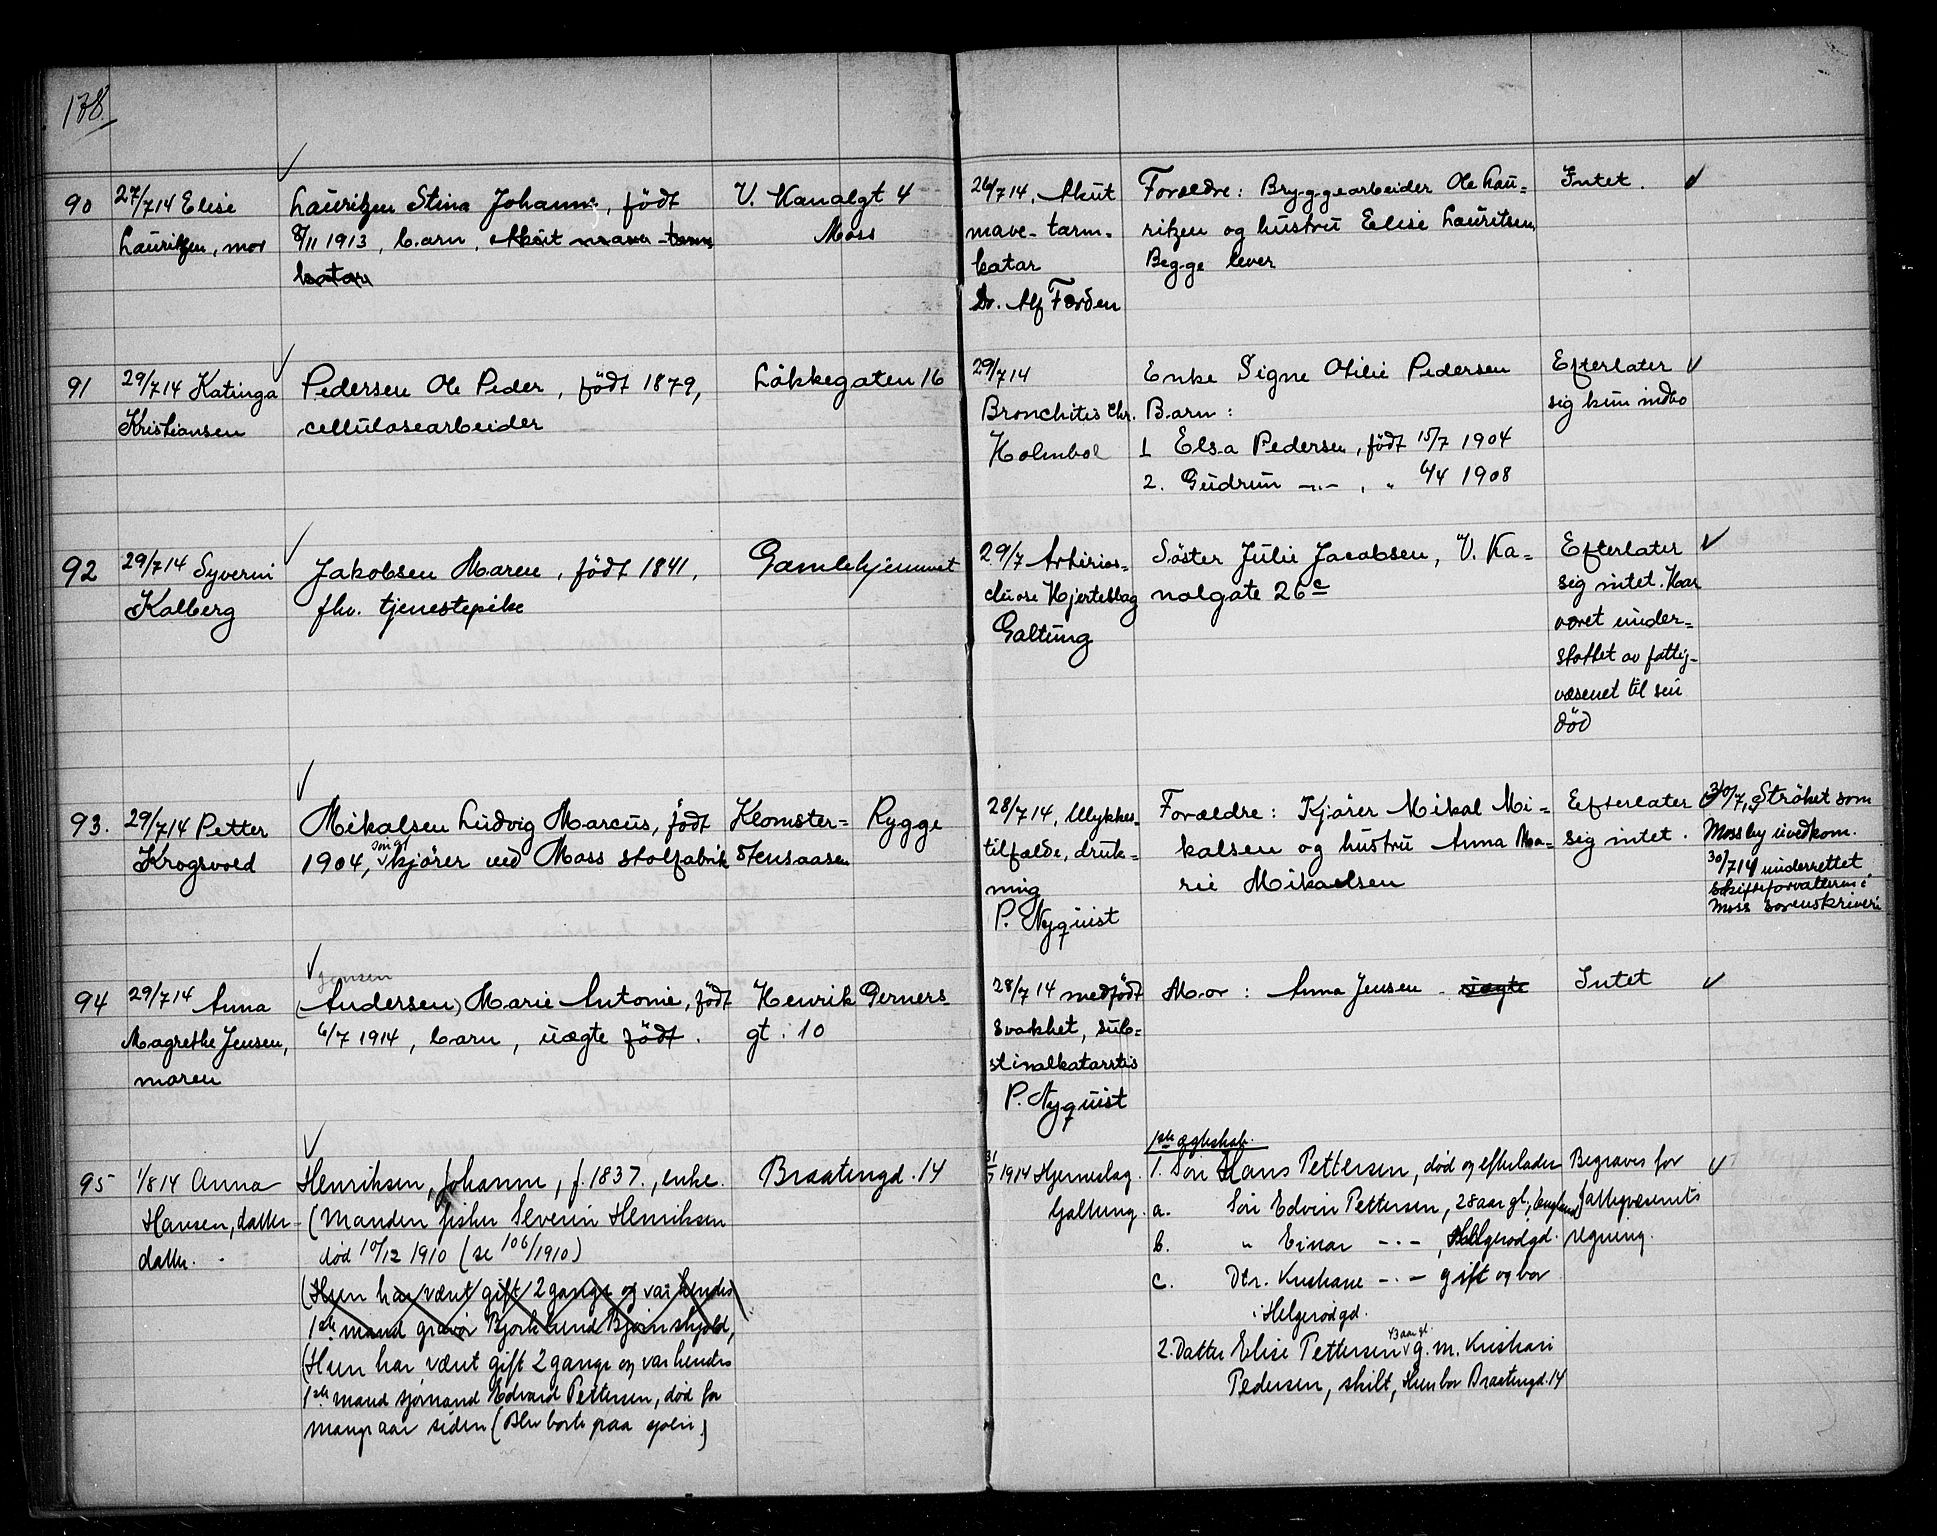 178.
90
27/7 14 Elise
Lauritzen, mor
Lauritzen Stina Johanne, födt
8/11 1913, barn, Akut mave-tarm
katar
V. Kanalgt 4
Moss
26/7 14, Akut
mave-tarm-
katar
Dr. Alf Förden
Forældre: Bryggearbeider Ole Lau-
ritzen og hustru Elise Lauritsen
Begge lever
Intet.
91
29/7 14 Katinga
Kristiansen
Pedersen Ole Peder, födt 1879,
cellulosearbeider
Lökkegaten 16
29/7 14
Bronchitis chr.
Holmbol
Enke Signe Otilie Pedersen
Barn:
1 Elsa Pedersen, födt 15/7 1904
2. Gudrun -"-, " 6/4 1908
Efterlater
sig kun indbo
92
29/7 14 Syverin
Kalberg
Jakobsen Maren, födt 1841,
fhv. tjenestepike
Gamlehjemmet
29/7 Arterios-
cluose Hjerteslag
Galtung
Söster Julie Jacobsen, V. Ka-
nalgate 26 c
Efterlater
sig intet. Har
været under-
støttet av fattig-
væsenet til sin
död
93.
29/7 14 Petter
Krogsvold
Mikalsen Ludvig Marcus, födt
1904, søn af kjörer ved Moss stolfabrik
Klomster-
stensaasen
Rygge
28/7 14, Ulykkes-
tilfælde, druk-
ning
P. Nyquist
Forældre: Kjörer Mikal Mi-
kalsen og hustru Anna Ma-
rie Mikaelsen
Efterlater
sig intet.
30/7, Ströket som
Moss by uvedkom.
30/7 14 underrettet
skifteforvalteren i
Moss sorenskriveri
94
29/7 14 Anna
Magrethe Jensen,
moren
Jensen
(Andersen) Marie Antonie, födt
6/7 1914, barn, uægte födt.
Henrik Gerners-
gt. 10
28/7 14 medfödt
svakhet, sub-
stinalkatarstis
P. Nyquist
Mor: Anna Jensen - uægte
Intet
95
1/8 14 Anna
Hansen, datter-
datter.
Henriksen, Johanne, f. 1837, enke.
(Manden fisker Severin Henriksen
død 10/12 1910 (se 106/1910)
(Hun har vænt gift 2 gange og var hendes
1ste mand gravør Bjørklund Bjørnskjold,
(Hun har vænt gift 2 gange og var hendes
1ste mand sjømand Edvard Pettersen, død for
mange aar siden (Blev borte paa sjøen)
Braatengd. 14
31/7 1914 Hjerneslag.
Galtung.
1ste ægteskab.
1. Søn Hans Pettersen, død og efterlader
a. Søn Edvin Pettersen, 28 aar gl., England
b. " Einar -"-, Helgerødgd.
c. Dtr. Kristiane -"- gift og bor
i Helgerødgd.
2. Datter Elise Pettersen 43 aar gl. g. m. Kristian
Pedersen, skilt, Hun bor Braatengd. 14
Begraves for
fattigvæsenets
regning.